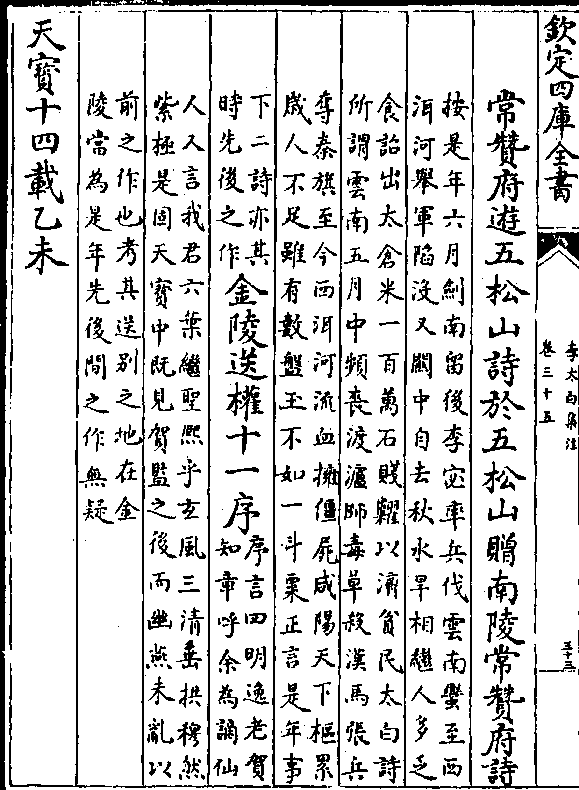 欽定四庫全書
李太白集注
卷三十五
五十三
常贊府遊五松山詩於五松山贈南陵常贊府詩
按是年六月劍南留後李宓率兵伐雲南蠻至西
洱河舉軍陷沒又關中自去秋水旱相繼人多乏
食詔出太倉米一百萬石賤糶以濟貧民太白詩
所謂雲南五月中頻喪渡瀘師毒草殺漢馬張兵
奪秦旗至今西洱河流血擁僵屍咸陽天下樞累
歲人不足雖有數盤玉不如一斗粟正言是年事
下二詩亦其
時先後之作
金陵送權十一序
序言四明逸老賀
知章呼余為謫仙
人又言我君六葉繼聖熙乎玄風三清垂拱穆然
紫極是固天寶中既見賀監之後而幽燕未亂以
前之作也考其送別之地在金
陵當為是年先後間之作無疑
天寶十四載乙未